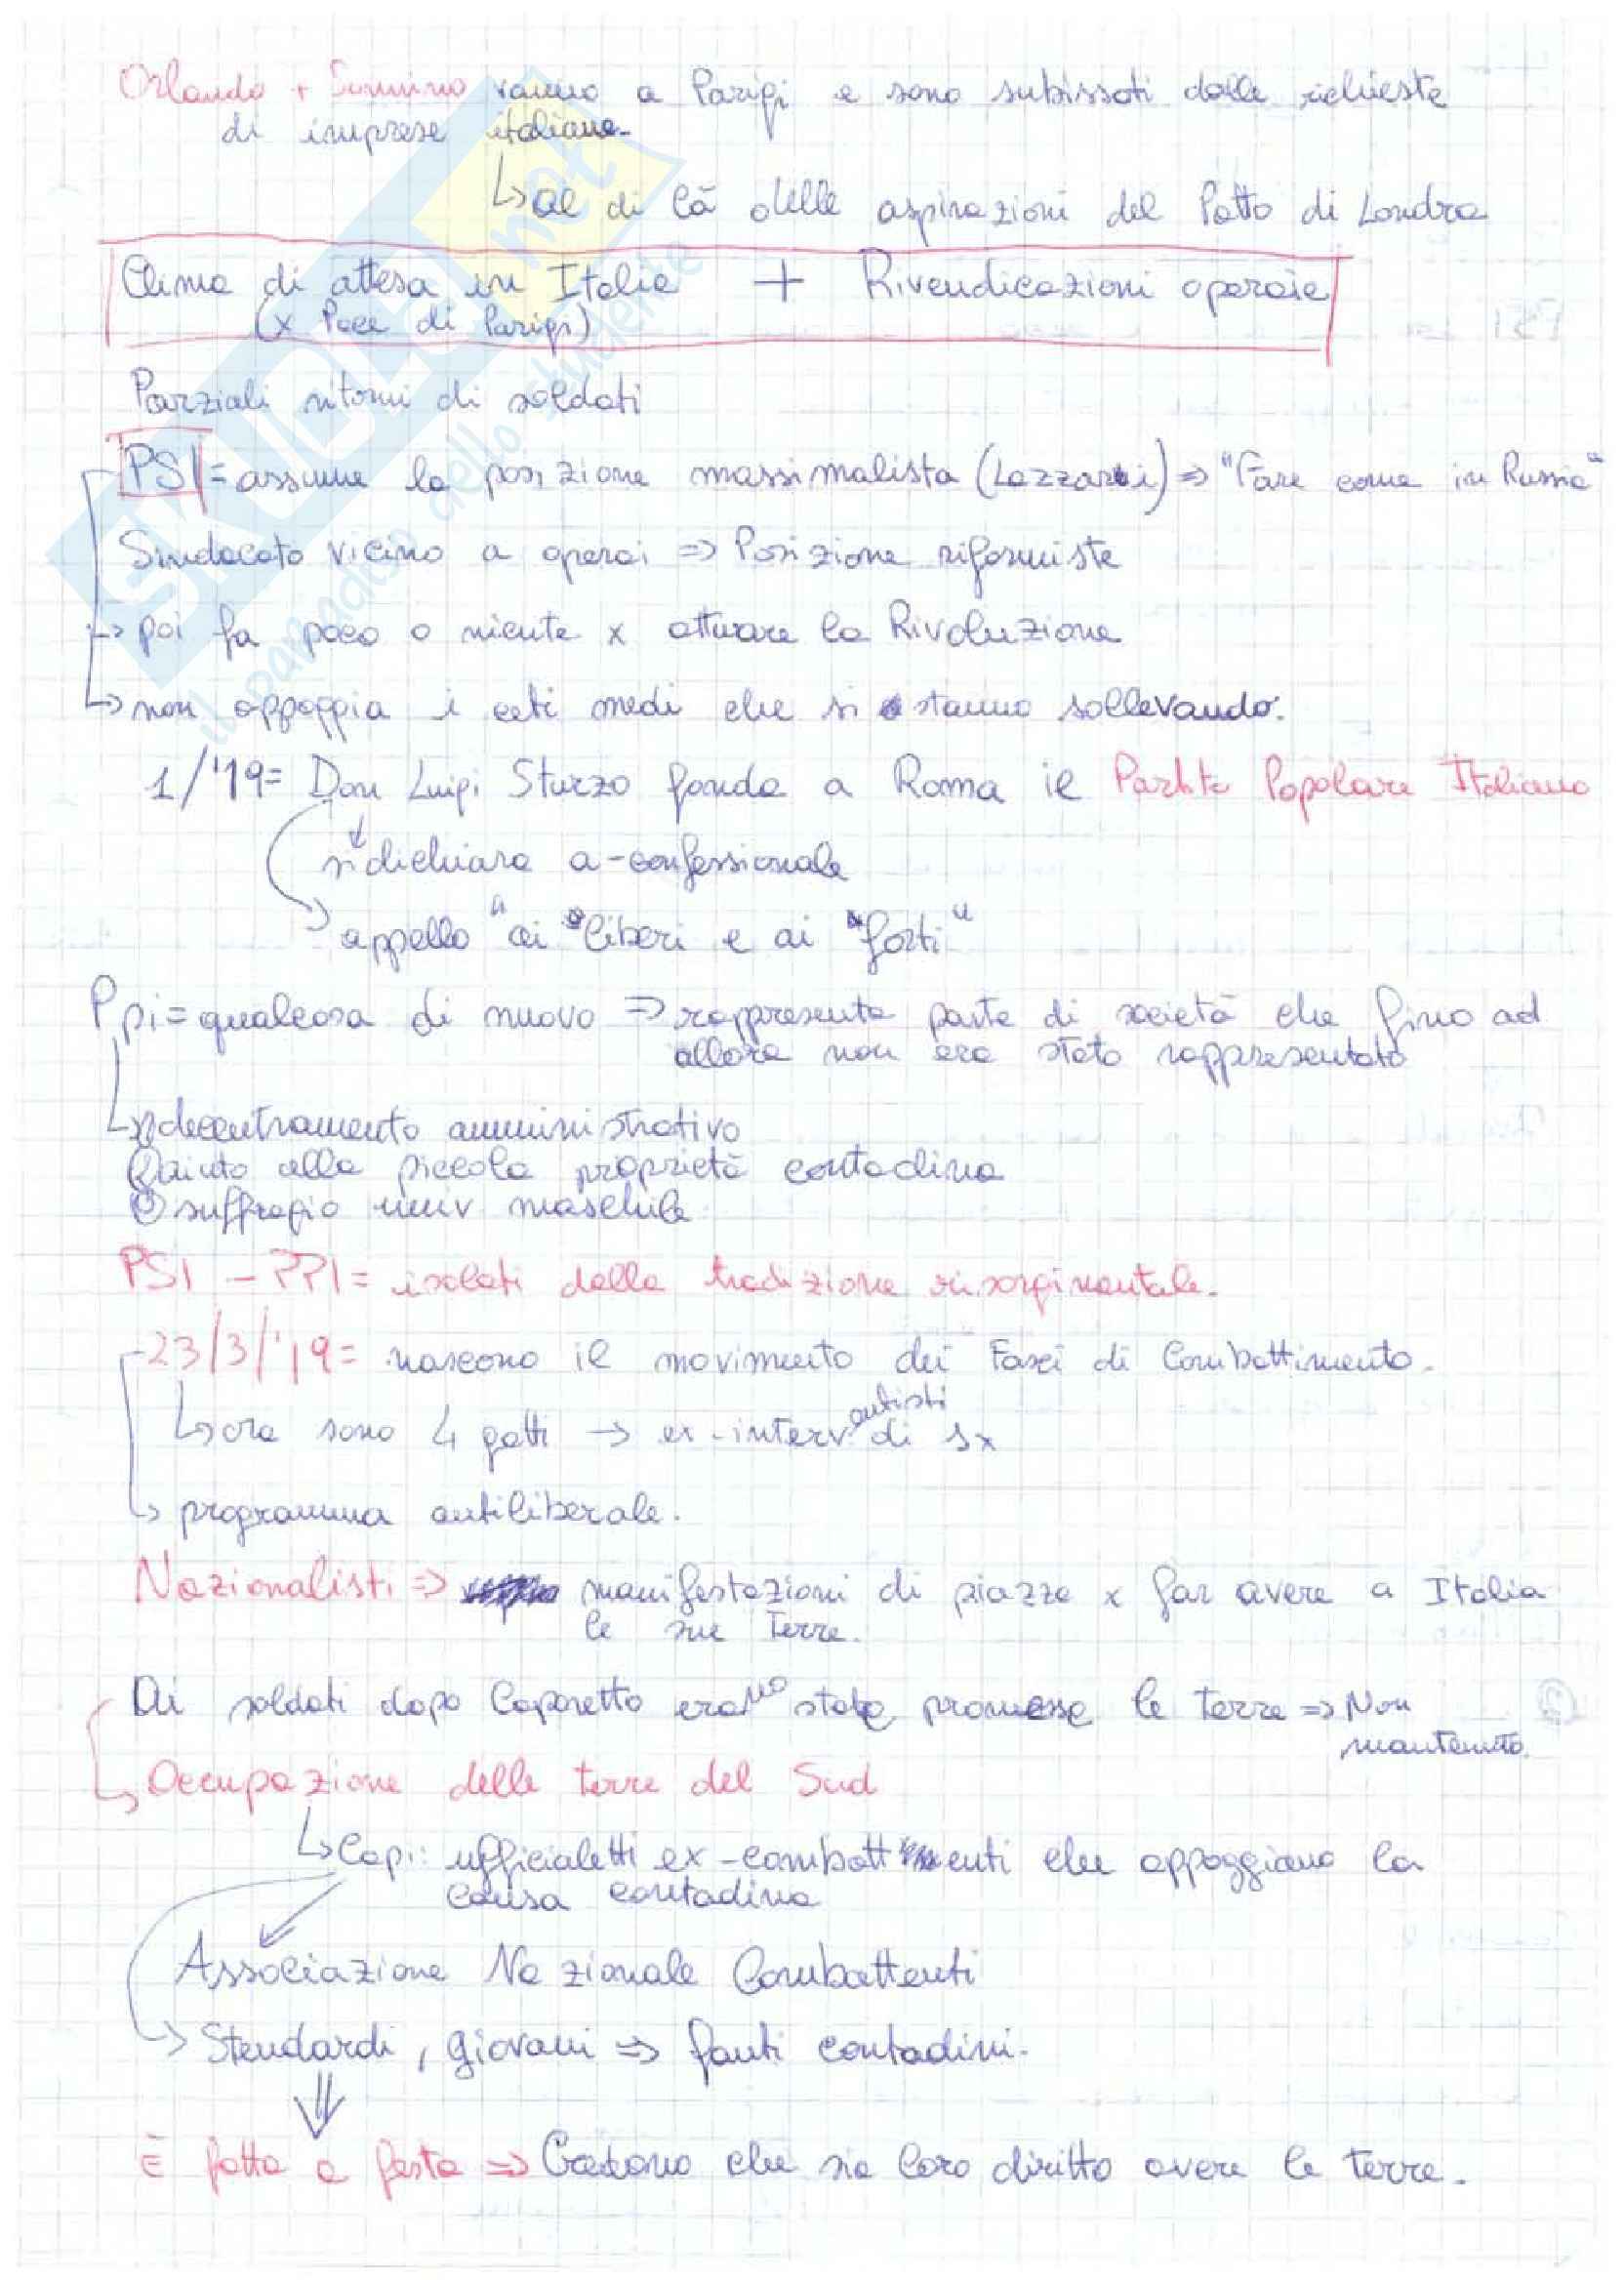 Orlando + Sonnino vanno a Parigi e sono subissati dalle richieste
di imprese italiane.
↳ al di là delle aspirazioni del Patto di Londra
Clima di attesa in Italia + Rivendicazioni operaie
(x Pace di Parigi)
Parziali ritorni di soldati
PSI = assume la posizione massimalista (Lazzari) => "Fare come in Russia"
Sindacato vicino a operai => Posizione riformiste
↳ poi fa poco o niente x attuare la Rivoluzione
↳ non appoggia i ceti medi che si stanno sollevando.
1/'19 = Don Luigi Sturzo fonda a Roma il Partito Popolare Italiano
si dichiara a-confessionale
appello "ai "liberi e ai "forti"
Ppi = qualcosa di nuovo => rappresenta parte di società che fino ad
allora non era stata rappresentata
↳ decentramento amministrativo
aiuto alla piccola proprietà contadina
suffragio univ maschile
PSI - PPI = isolati dalla tradizione risorgimentale.
23/3/'19 = nascono il movimento dei Fasci di Combattimento.
↳ ora sono 4 gatti → ex-interventisti di sx
↳ programma antiliberale.
Nazionalisti => manifestazioni di piazza x far avere a Italia
le sue terre.
Ai soldati dopo Caporetto erano state promesse le terre => Non
mantenuto.
↳ Occupazione delle terre del Sud
↳ Capi: ufficialetti ex-combattenti che appoggiano la
causa contadina
Associazione Nazionale Combattenti
→ Stendardi, giovani => fanti contadini.
È fatta a festa => Credono che sia loro diritto avere le terre.
SKUOLA.net
il paradiso dello studente